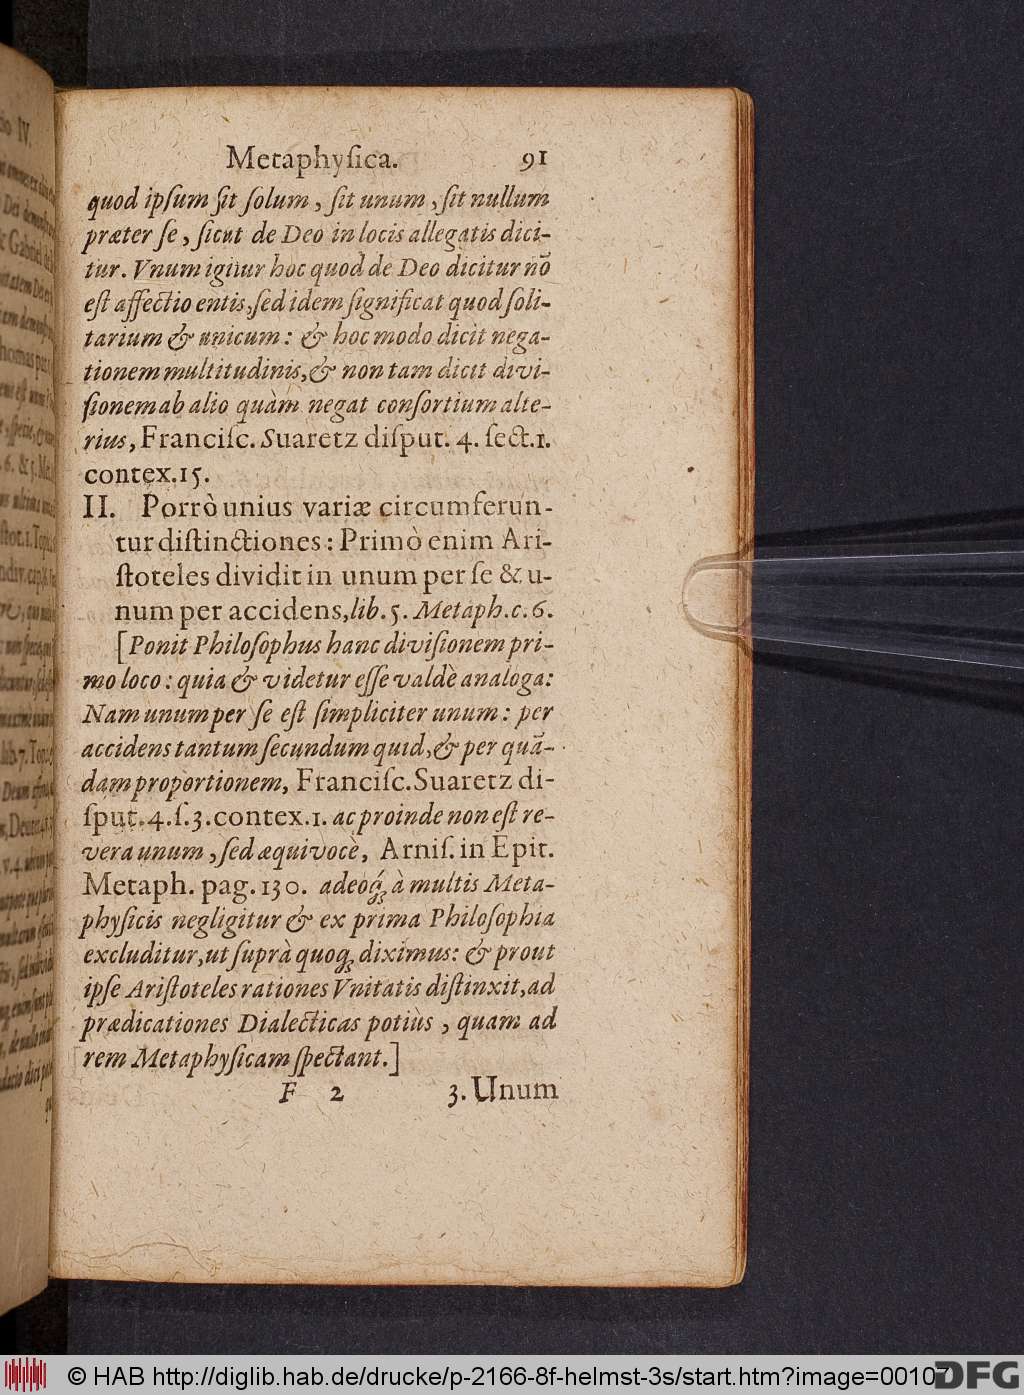 Metaphyſica. 91
quod ipſum ſit ſolum, ſit unum, ſit nullum
præter ſe, ſicut de Deo in locis allegatis dici-
tur. Vnum igitur hoc quod de Deo dicitur nō
eſt affectio entis, ſed idem ſignificat quod ſoli-
tarium & unicum: & hoc modo dicit nega-
tionem multitudinis, & non tam dicit divi-
ſionem ab alio quàm negat conſortium alte-
rius, Franciſc. Suaretz diſput. 4. ſect. 1.
contex. 15.
II. Porrò unius variæ circumferun-
tur diſtinctiones: Primò enim Ari-
ſtoteles dividit in unum per ſe & u-
num per accidens, lib. 5. Metaph. c. 6.
[Ponit Philoſophus hanc diviſionem pri-
mo loco: quia & videtur eſſe valdè analoga:
Nam unum per ſe eſt ſimpliciter unum: per
accidens tantum ſecundum quid, & per quā-
dam proportionem, Franciſc. Suaretz di-
ſput. 4. ſ. 3. contex. 1. ac proinde non eſt re-
vera unum, ſed æquivocè, Arniſ. in Epit.
Metaph. pag. 130. adeoq́ꝫ à multis Meta-
phyſicis negligitur & ex prima Philoſophia
excluditur, ut ſuprà quoqꝫ diximus: & prout
ipſe Ariſtoteles rationes Vnitatis diſtinxit, ad
prædicationes Dialecticas potiùs, quam ad
rem Metaphyſicam ſpectant.]
F 2 3. Unum
© HAB http://diglib.hab.de/drucke/p-2166-8f-helmst-3s/start.htm?image=00107
DFG